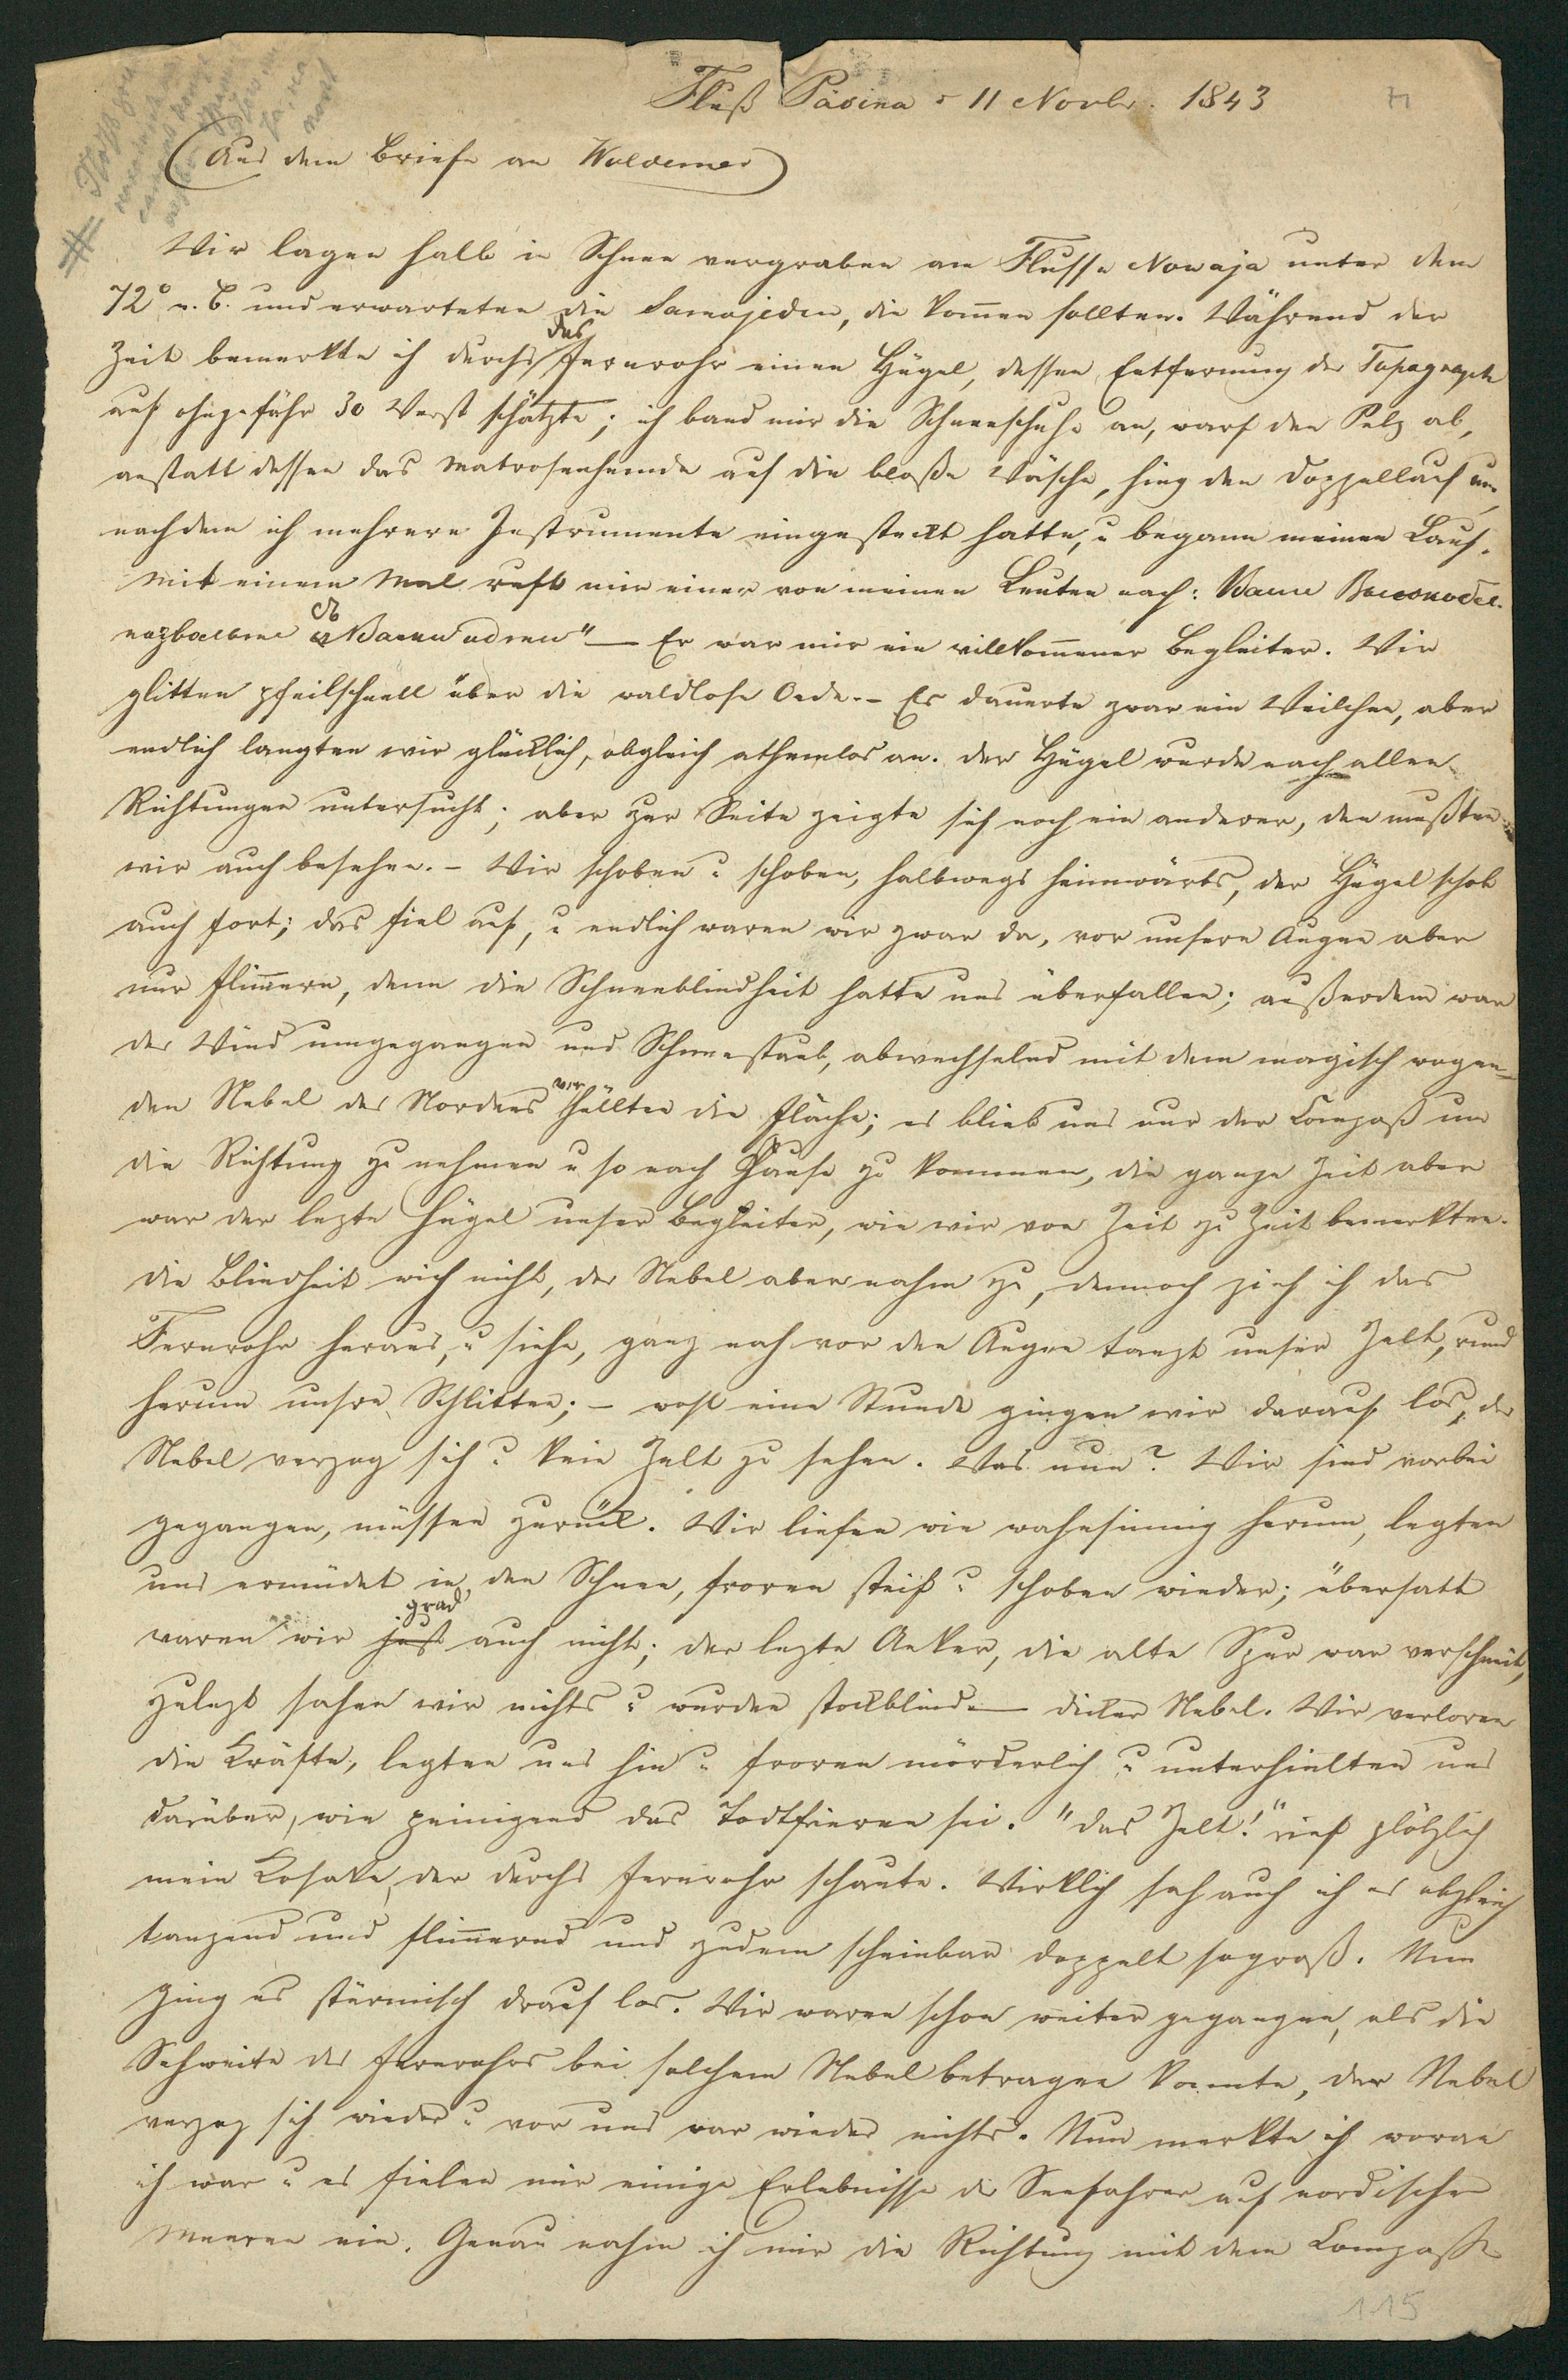 Fluß Päsina d 11 Novbr. 1843
(Aus dem Briefe an Woldemar)
Wir lagen halb in Schnee vergraben am Flusse Nowaja unter dem
72° n. B. und erwarteten die Samojeden, die kom̅en sollten. Während der
Zeit bemerkte ich durchs das Fernrohr einen Hügel, dessen Entfernung der Topograph
auf ohngefähr 30 Werst schätzte; ich band mir die Schneeschuhe an, warf den Pelz ab,
anstatt dessen das Matrosenhemde auf die bloße Wäsche, hing den Doppellauf um,
nachdem ich mehrere Instrumente eingesteckt hatte, u begann meinen Lauf.
Mit einem Mal ruft mir einer von meinen Leuten nach: Ваше Высокобла-
городие съ Вами идти" — Er war mir ein willkom̅ener Begleiter. Wir
glitten pfeilschnell über die waldlose Oede. – Es dauerte zwar ein Weilchen, aber
endlich langten wir glücklich, obgleich athemlos an. Der Hügel wurde nach allen
Richtungen untersucht; aber zur Seite zeigte sich noch ein anderer, den mußten
wir auch besehen. – Wir schoben u schoben, halbwegs heimwärts, der Hügel schob
auch fort; das fiel auf, u endlich waren wir zwar da, vor unsern Augen aber
nur flim̅ern, denn die Schneeblindheit hatte uns überfallen; außerdem war
der Wind umgegangen und Schneestaub, abwechselnd mit dem magisch wogen-
den Nebel des Nordens verhüllten die Fläche; es blieb uns nur der Compaß um
die Richtung zu nehmen u so nach Hause zu kommen, die ganze Zeit aber
war der lezte Hügel unser Begleiter, wie wir von Zeit zu Zeit bemerkten.
Die Blindheit wich nicht, der Nebel aber nahm zu, dennoch zieh ich das
Fernrohr heraus, u siehe, ganz nah vor den Augen tanzt unser Zelt, rund
herum unsre Schlitten; – wohl eine Stunde gingen wir darauf los, der
Nebel verzog sich u kein Zelt zu sehen. Was nun? Wir sind vorbei
gegangen, müssen zurück. Wir liefen wie wahnsinnig herum, legten
uns ermüdet in den Schnee, froren steif u schoben wieder; übersatt
waren wir just grad auch nicht; der lezte Anker, die alte Spur war verschneit,
zulezt sahen wir nichts u wurden stockblind – dicker Nebel. Wir verloren
die Kräfte, legten uns hin u froren mörderlich u unterhielten uns
darüber, wie peinigend das Todtfrieren sei. "Das Zelt!" rief plötzlich
mein Kosake, der durchs Fernrohr schaute. Wirklich sah auch ich es obgleich
tanzend und flim̅ernd und zudem scheinbar doppelt so groß. Nun
ging es stürmisch drauf los. Wir waren schon weiter gegangen, als die
Sehweite des Fernrohrs bei solchem Nebel betragen konnte, der Nebel
verzog sich wieder u vor uns war wieder nichts. Nun merkte ich woran
ich war u es fielen mir einige Erlebnisse der Seefahrer auf nordischen
Meeren ein. Genau nahm ich mir die Richtung mit dem Compasse
115